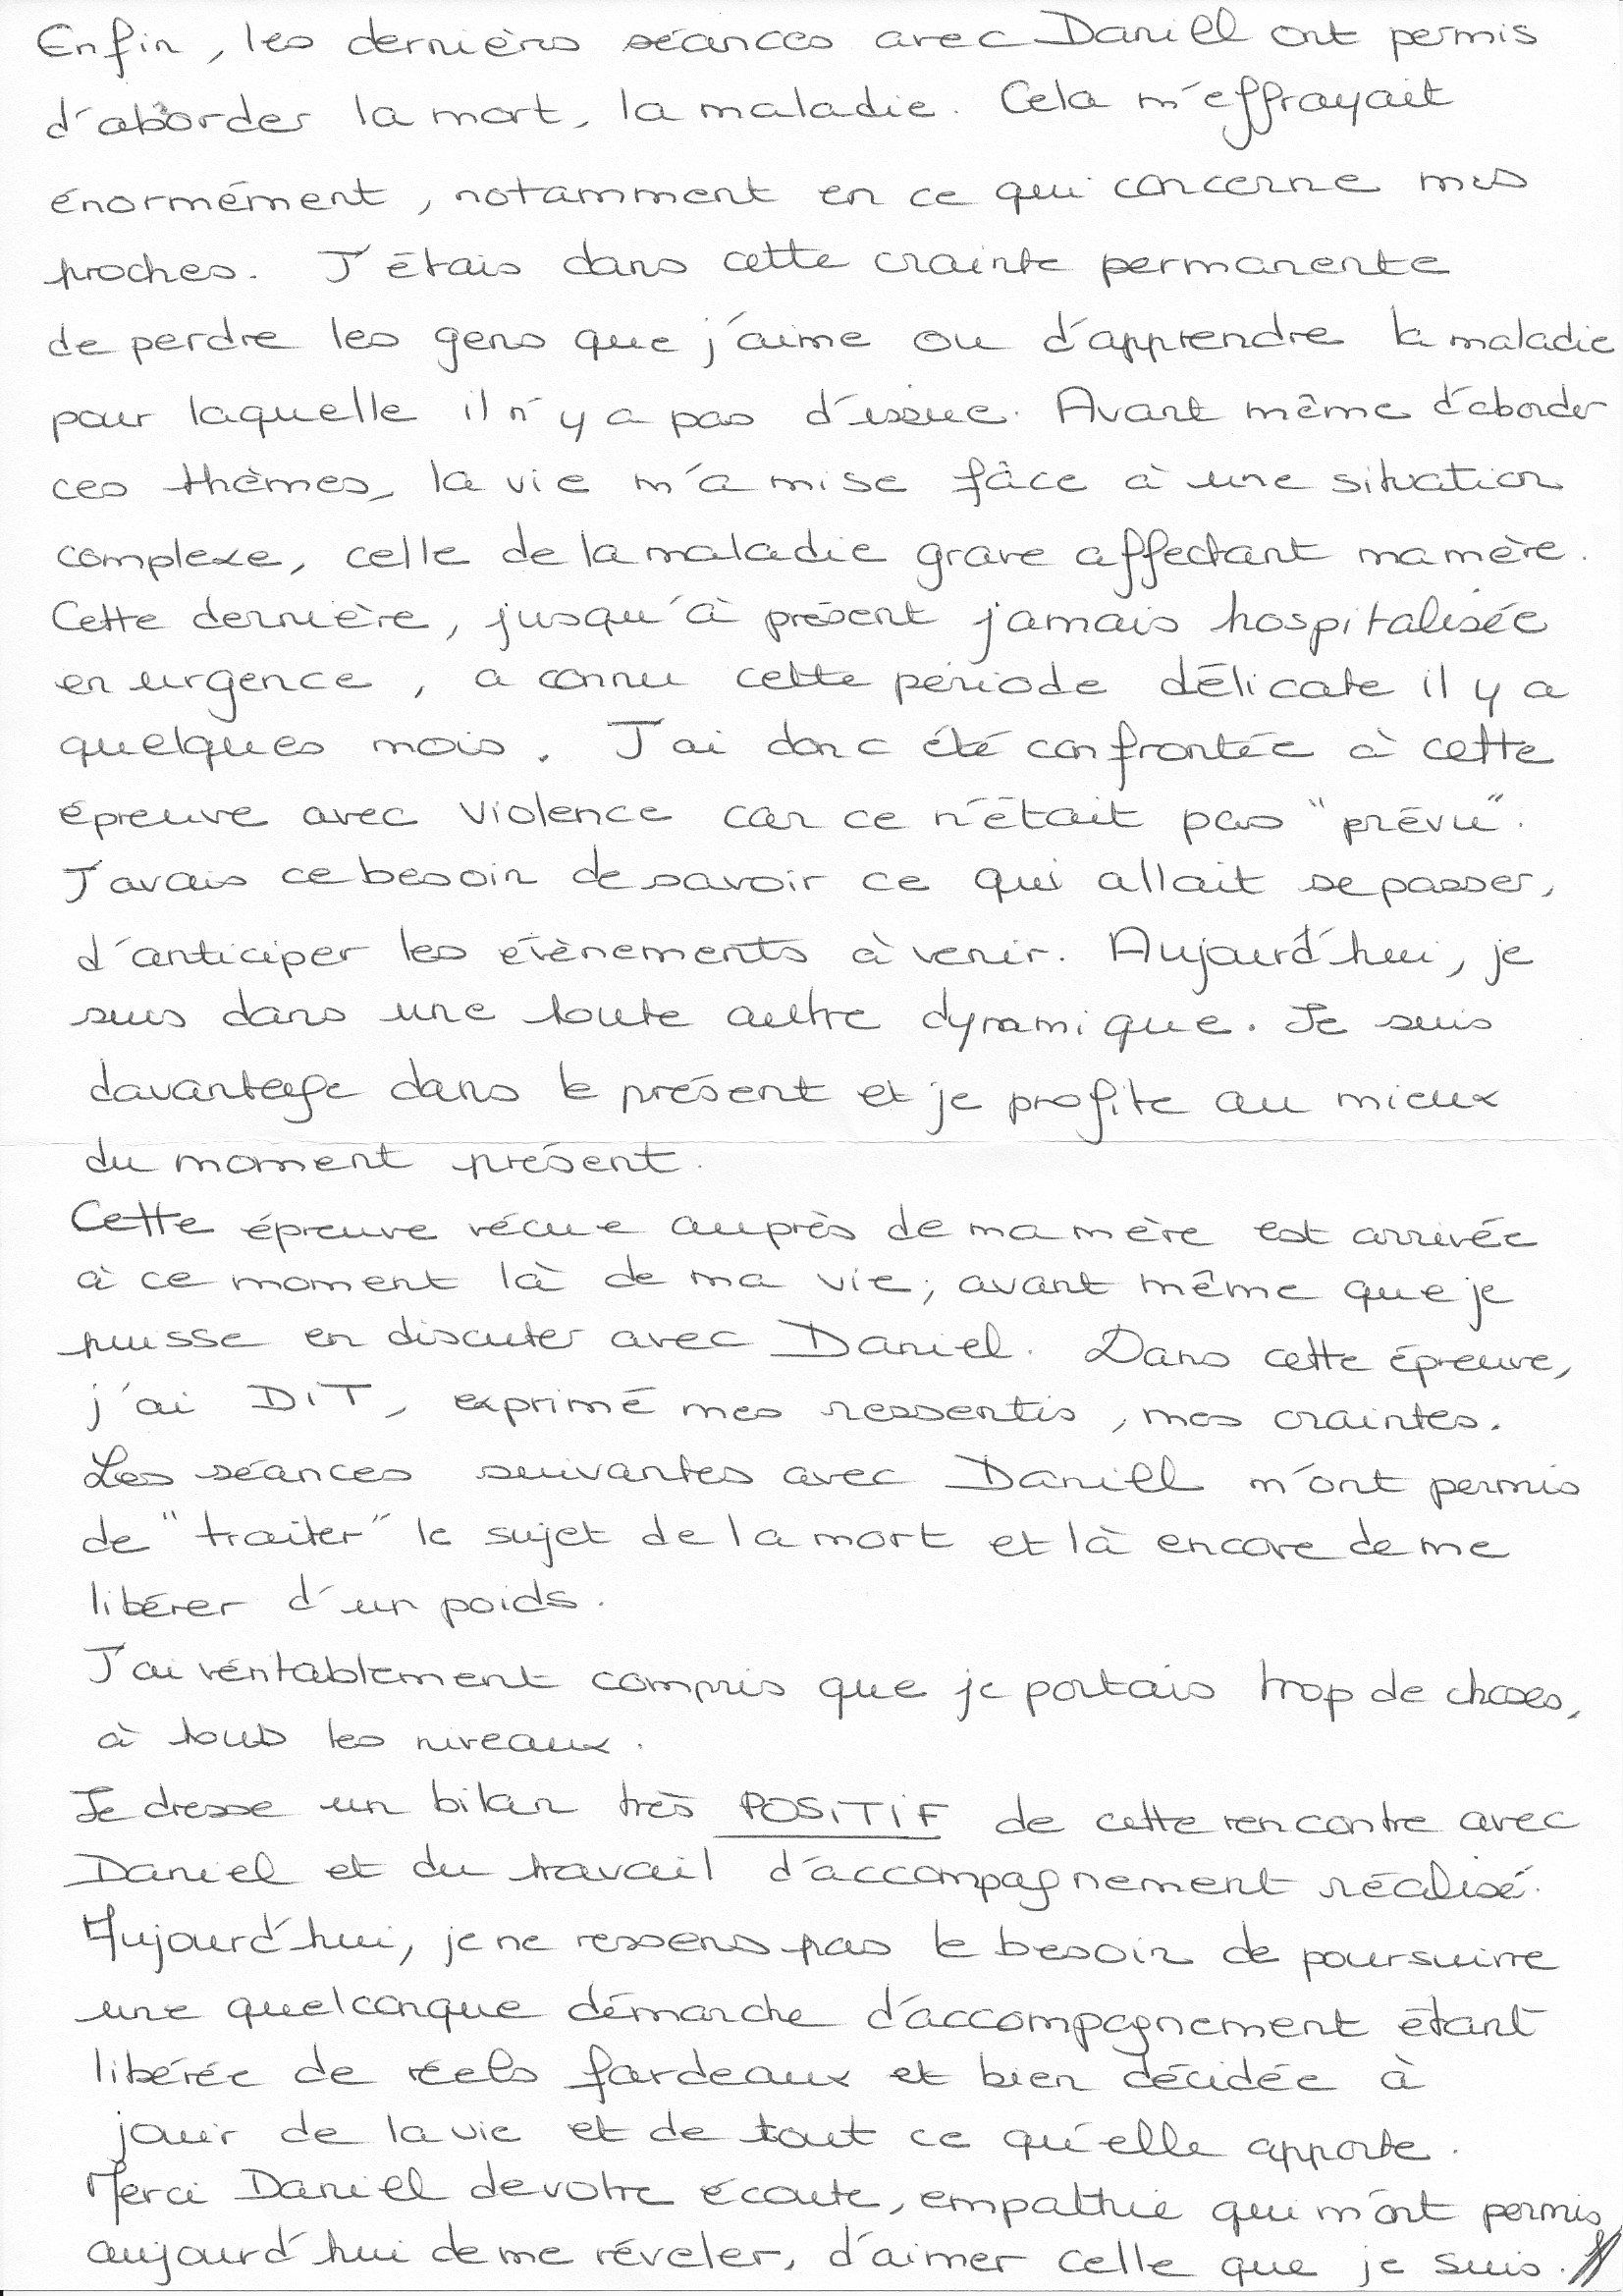 Enfin, les dernières séances avec Daniel ont permis
d'aborder la mort, la maladie. Cela m'effrayait
énormément, notamment en ce qui concerne mes
proches. J'étais dans cette crainte permanente
de perdre les gens que j'aime ou d'apprendre la maladie
pour laquelle il n'y a pas d'issue. Avant même d'aborder
ces thèmes, la vie m'a mise fâce à une situation
complexe, celle de la maladie grave affectant ma mère.
Cette dernière, jusqu'à présent jamais hospitalisée
en urgence, a connu cette période délicate il y a
quelques mois. J'ai donc été confrontée à cette
épreuve avec violence car ce n'était pas "prévu".
J'avais ce besoin de savoir ce qui allait se passer,
d'anticiper les évènements à venir. Aujourd'hui, je
suis dans une toute autre dynamique. Je suis
davantage dans le présent et je profite au mieux
du moment présent.
Cette épreuve vécue auprès de ma mère est arrivée
à ce moment là de ma vie, avant même que je
puisse en discuter avec Daniel. Dans cette épreuve,
j'ai DIT, exprimé mes ressentis, mes craintes.
Les séances suivantes avec Daniel m'ont permis
de "traiter" le sujet de la mort et là encore de me
libérer d'un poids.
J'ai véritablement compris que je portais trop de choses,
à tous les niveaux.
Je dresse un bilan très POSITIF de cette rencontre avec
Daniel et du travail d'accompagnement réalisé.
Aujourd'hui, je ne ressens pas le besoin de poursuivre
une quelconque démarche d'accompagnement étant
libérée de réels fardeaux et bien décidée à
jouir de la vie et de tout ce qu'elle apporte.
Merci Daniel de votre écoute, empathie qui m'ont permis
aujourd'hui de me révéler, d'aimer celle que je suis.